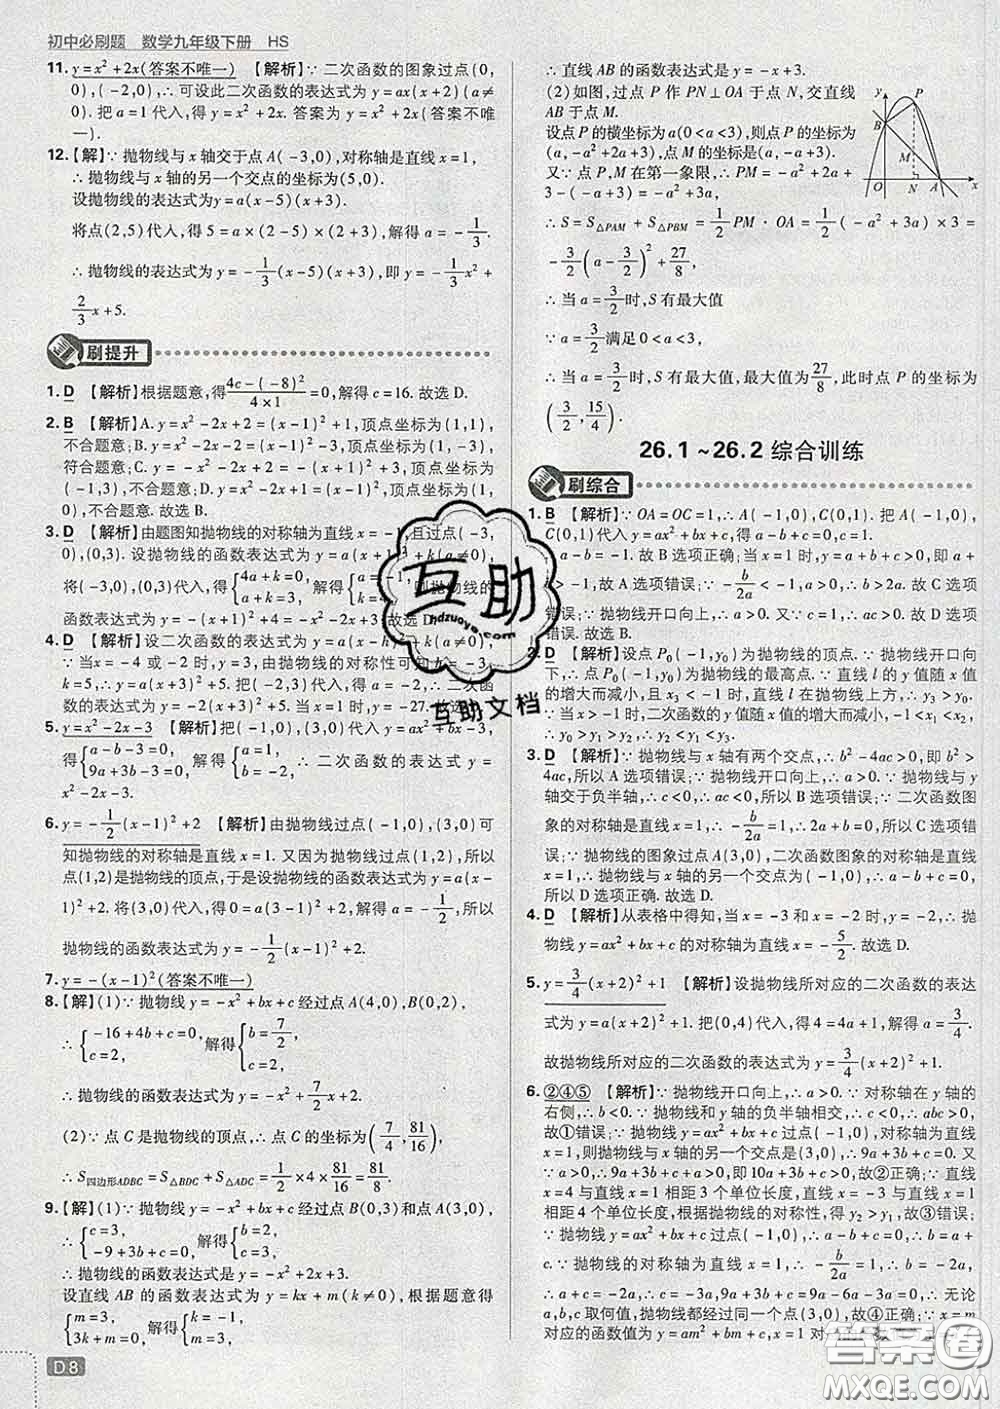 初中必刷题 数学九年级下册 HS
11. y=x²+2x(答案不唯一) 【解析】∵二次函数的图象过点(0,
0),(-2,0),∴可设此二次函数的表达式为y=ax(x+2)(a≠
0). 把a=1代入,得y=x²+2x. 答案为y=x²+2x(答案不唯一).
12. 【解】∵抛物线与x轴交于点A(-3,0),对称轴是直线x=1,
∴抛物线与x轴的另一个交点的坐标为(5,0).
设抛物线的表达式为y=a(x-5)(x+3).
将点(2,5)代入,得5=a×(2-5)×(2+3),解得a=-1/3.
∴抛物线的表达式为y=-1/3(x-5)(x+3),即y=-1/3x²+
2/3x+5.
刷提升
1. D 【解析】根据题意,得(4c-(-8)²)/(4×1)=0,解得c=16. 故选D.
2. B 【解析】A. y=x²-2x+2=(x-1)²+1,顶点坐标为(1,1),
不合题意;B. y=x²-2x-2=(x-1)²-3,顶点坐标为(1,-3),
符合题意;C.
不合题意;D. y=x²-2x+1=(x-1)²,顶点坐标为(1,0),不合题意. 故选B.
3. D 【解析】由题图知抛物线的对称轴为直线x=-1,且过点(-3,
0),(0,3). 设抛物线的函数表达式为y=a(x+1)²+k(a≠0),
将(-3,0),(0,3)代入,得{4a+k=0, a+k=3,解得{ 则抛物线的
函数表达式为y=-(x+1)²+4=-x²-2x+3. 故选D.
4. D 【解析】设二次函数的表达式为y=a(x-h)²+k(a≠0).
∵当x=-4或-2时,y=3,由抛物线的对称性可知h=-3,
k=5,∴y=a(x+3)²+5. 把(-2,3)代入,得a=-2,∴二次函
数的表达式为y=-2(x+3)²+5. 当x=1时,y=-27. 故选D.
5. y=x²-2x-3 【解析】把(-1,0),(3,0)代入y=ax²+bx-3,
得{a-b-3=0, 9a+3b-3=0,解得{a=1, b=-2.∴二次函数的表达式为y=
x²-2x-3.
6. y=-1/2(x-1)²+2 【解析】由抛物线过点(-1,0),(3,0)可
知抛物线的对称轴是直线x=1. 又因为抛物线过点(1,2),所以
点(1,2)是抛物线的顶点,于是设抛物线的函数表达式为y=a(x-
1)²+2. 将(3,0)代入,得0=a(3-1)²+2,解得a=-1/2,所以
抛物线的函数表达式为y=-1/2(x-1)²+2.
7. y=-(x-1)²(答案不唯一)
8. 【解】(1)∵抛物线y=-x²+bx+c经过点A(4,0),B(0,2),
∴{-16+4b+c=0, c=2,解得{b=7/2, c=2,
∴抛物线的函数表达式为y=-x²+7/2x+2.
(2)∵点C是抛物线的顶点,∴点C的坐标为(7/4,81/16),
∴S四边形ADBC=S△BDC+S△ADC=1/2×4×81/16=81/8.
9. 【解】(1)∵抛物线y=-x²+bx+c经过点B(0,3)和点A(3,0),
∴{c=3, -9+3b+c=0,解得{b=2, c=3,
∴抛物线的函数表达式是y=-x²+2x+3.
设直线AB的函数表达式为y=kx+m(k≠0),根据题意得
{m=3, 3k+m=0,解得{k=-1, m=3,
D8
∴直线AB的函数表达式是y=-x+3.
(2)如图,过点P作PN⊥OA于点N,交直线
AB于点M.
设点P的横坐标为a(0<a<3),则点P的坐标为
(a,-a²+2a+3),点M的坐标为(a,-a+3).
又∵点P,M在第一象限,∴PM=-a²+2a+
3-(-a+3)=-a²+3a,
∴S=S△PAM+S△PBM=1/2PM·OA=1/2(-a²+3a)×3=
-3/2(a-3/2)²+27/8,
∴当a=3/2时,S有最大值
∵a=3/2满足0<a<3,
∴当a=3/2时,S有最大值,最大值为27/8,此时点P的坐标为
(3/2,15/4).
y P B M O N A x
26.1~26.2综合训练
刷综合
1. B 【解析】∵OA=OC=1,∴A(-1,0),C(0,1). 把A(-1,0),
C(0,1)代入y=ax²+bx+c,得a-b+c=0,c=1.
∴a-b=-1. 故B选项正确;当x=1时,y=a+b+c>0,∴a+b>
-1,故A选项错误;∵-b/2a<-1,a>0,∴b>2a. 故C选项
错误;∵抛物线开口向上,∴a>0. 又∵c=1,∴ac>0. 故D选项
错误. 故选B.
2. D 【解析】设点P₀(-1,y₀)为抛物线的顶点. ∵抛物线开口向
下,∴点P₀(-1,y₀)为抛物线的最高点. ∵直线l的y值随x值
的增大而增大,且x₃<-1,∴直线l上的点在抛物线上方,∴y₃>y₀.
∵当x>-1时,二次函数的y值随x值的增大而减小,-1<x₁<x₂,
∴y₀>y₁>y₂,∴y₂<y₁<y₃. 故选D.
3. D 【解析】∵抛物线与x轴有两个交点,∴b²-4ac>0,即b²>
4ac,所以A选项错误;∵抛物线开口向上,∴a>0. ∵抛物线与y
轴交于负半轴,∴c<0,∴ac<0,所以B选项错误;∵二次函数图
象的对称轴是直线x=1,∴-b/2a=1,∴2a+b=0,所以C选项错
误;∵抛物线的图象过点A(3,0),二次函数图象的对称轴是直线
x=1,∴抛物线与x轴的另一个交点为(-1,0),∴a-b+c=0,
所以D选项正确. 故选D.
4. D 【解析】从表格中得知,当x=-3和x=-2时,y=-2,∴抛
物线y=ax²+bx+c的对称轴为直线x=-5/2. 故选D.
5. y=3/4(x+2)²+1 【解析】设抛物线所对应的二次函数的表达
式为y=a(x+2)²+1. 把(0,4)代入,得4=4a+1,解得a=3/4.
故抛物线所对应的二次函数的表达式为y=3/4(x+2)²+1.
6. ②④⑤ 【解析】∵抛物线开口向上,∴a>0. ∵对称轴在y轴的
右侧,∴b<0. ∵抛物线和y轴的负半轴相交,∴c<0,∴abc>0,
故①错误;∵抛物线y=ax²+bx+c过点(-1,0),且对称轴为直线
x=1,∴抛物线与x轴的另一个交点是(3,0),∴9a+3b+c=0.
∵a>0,∴10a+3b+c>0,故②正确;∵直线
x=4与直线x=1相距3个单位长度,直线x=-3与直线x=1
相距4个单位长度,根据抛物线的对称性,得y₂>y₁,故③错误;
∵抛物线y=ax²+bx+c过点(-1,0),∴a-b+c=0. ∵-b/2a=1,
∴b=-2a,∴a+2a+c=0,∴c=-3a,∴9a-6a-3a=0,∴无论
a,b,c取何值,抛物线都经过同一个点(3,0),故④正确;∵x=m
对应的函数值为y=am²+bm+c,x=1
互助
Dhdzuoye.com
互助文档
答案圈
MXQE.COM